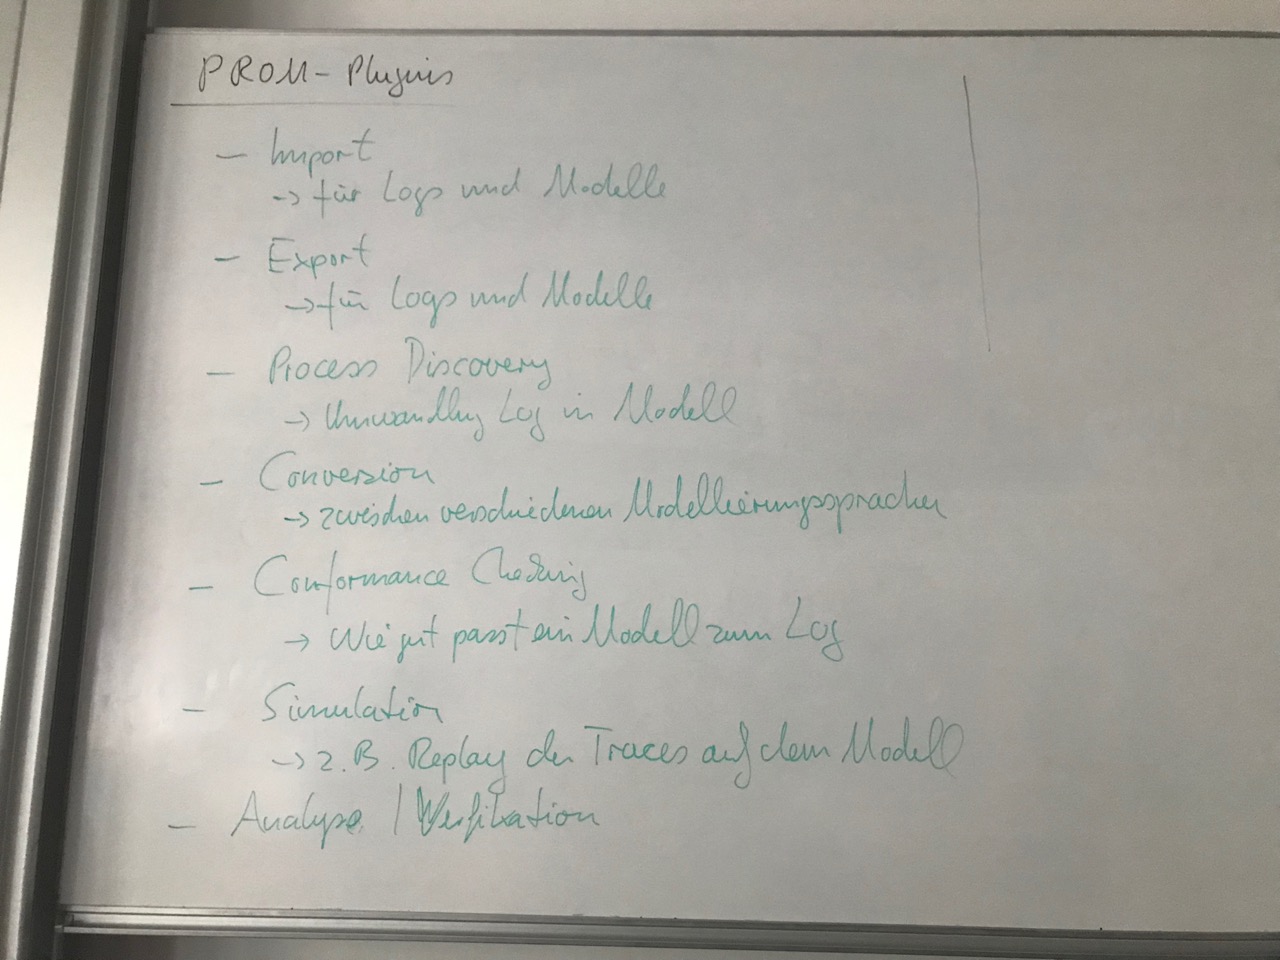 PROM - Plugins
- Import
-> für Logs und Modelle
- Export
-> für Logs und Modelle
- Process Discovery
-> Umwandlug Log in Modell
- Conversion
-> zwischen verschiedenen Modellierungssprachen
- Conformance Checking
-> Wie gut passt ein Modell zum Log
- Simulation
-> z.B. Replay der Traces auf dem Modell
- Analyse / Verfikation